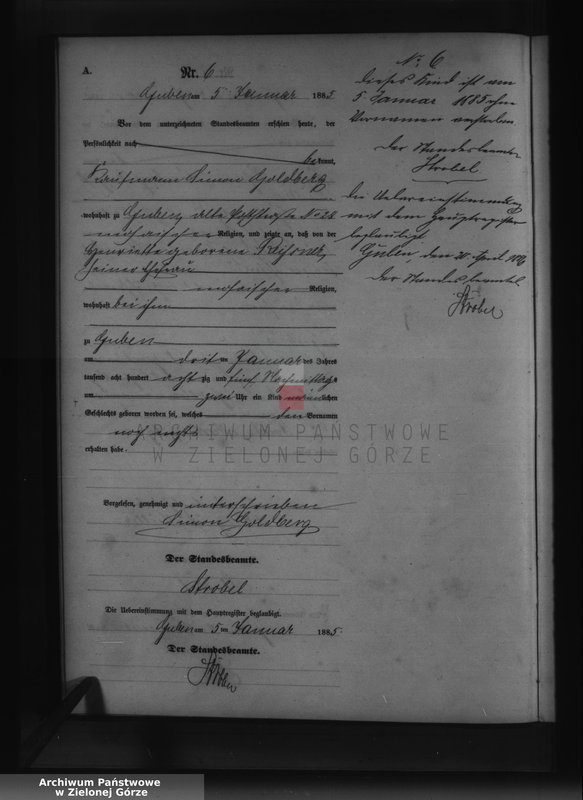 A.
Nr. 6
Guben am 5. Januar 1885.
Vor dem unterzeichneten Standesbeamten erschien heute, der
Persönlichkeit nach
bekannt,
Kaufmann Simon Goldberg
wohnhaft zu Guben, alte Poststraße No 28
mosaischer Religion, und zeigte an, daß von der
Henriette geborene
seiner Ehefrau
mosaischer Religion,
wohnhaft bei ihm
zu Guben
am dritten Januar des Jahres
tausend acht hundert achtzig und fünf Nachmittags
um zwei Uhr ein Kind männlichen
Geschlechts geboren worden sei, welches den Vornamen
noch nicht
erhalten habe.
Vorgelesen, genehmigt und unterschrieben
Simon Goldberg
Der Standesbeamte.
Strobel
Die Uebereinstimmung mit dem Hauptregister beglaubigt.
Guben am 5 ten Januar 1885.
Der Standesbeamte.
Strobel
No 6
Dieses Kind ist am
5 Januar 1885 ohne
Vornamen verstorben
Der Standesbeamte
Strobel
Die Uebereinstimmung
mit dem Hauptregister
beglaubigt
Guben, den April
Der Standesbeamte.
Strobel
ARCHIWUM PAŃSTWOWE
W ZIELONEJ GÓRZE
Archiwum Państwowe
w Zielonej Górze